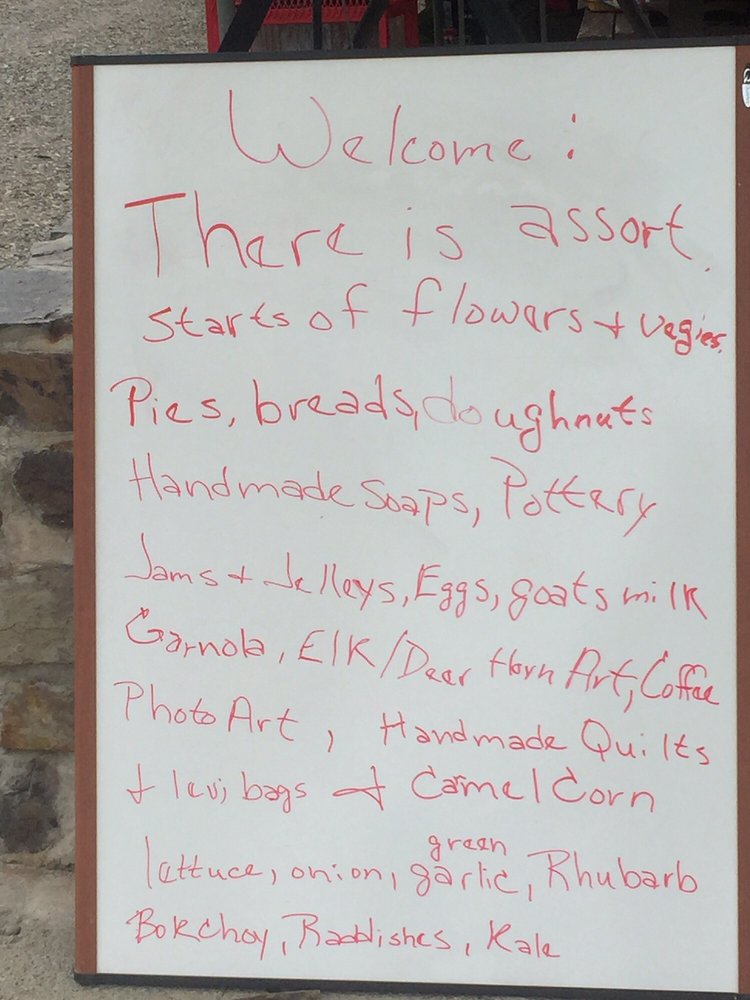 Welcome:
There is assort.
starts of flowers + vegies.
Pies, breads, doughnuts
Handmade Soaps, Pottery
Jams + Jelleys, Eggs, goats milk
Garnola, Elk/Deer Horn Art, Coffee
Photo Art, Handmade Quilts
+ levi bags + Camel Corn
green
lettuce, onion, garlic, Rhubarb
Bokchoy, Raddishes, Kale